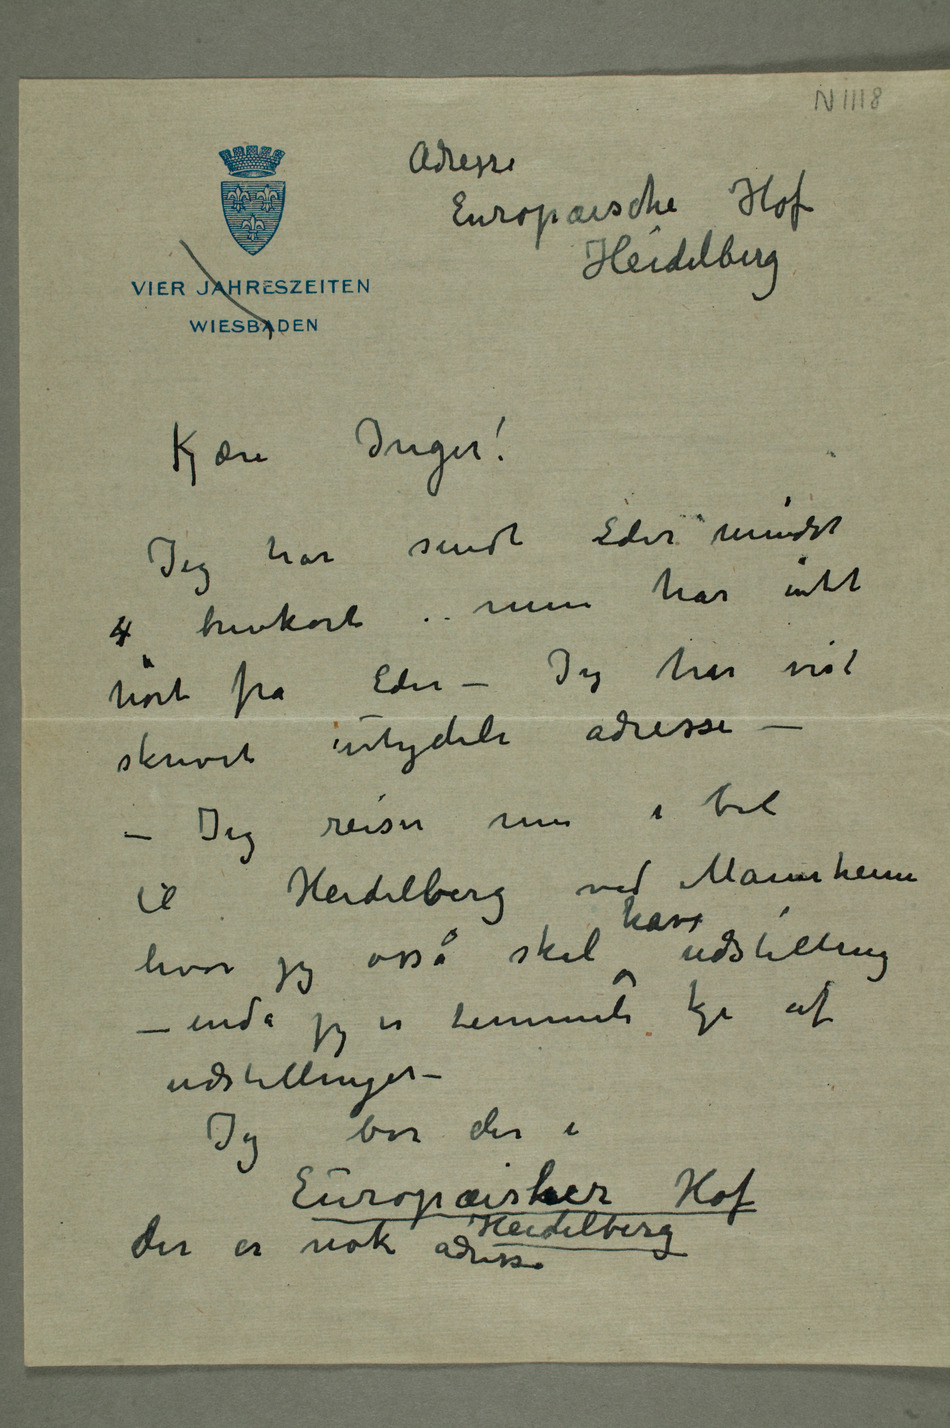 N 1118
Adresse
Europæische Hof
Heidelberg
VIER JAHRESZEITEN
WIESBADEN
Kjære Inger!
Jeg har sendt Eder mindst
4 brevkort .. men har intet
hørt fra Eder – Jeg har vist
skrevet utydelig adresse –
– Jeg reiser nu i bil
til Heidelberg ved Mannheim
hvor jeg osså skal have udstilling
– endå jeg er temmelig kje af
udstillinger –
Jeg bor der i
Europæisker Hof
Heidelberg
der er nok adresse